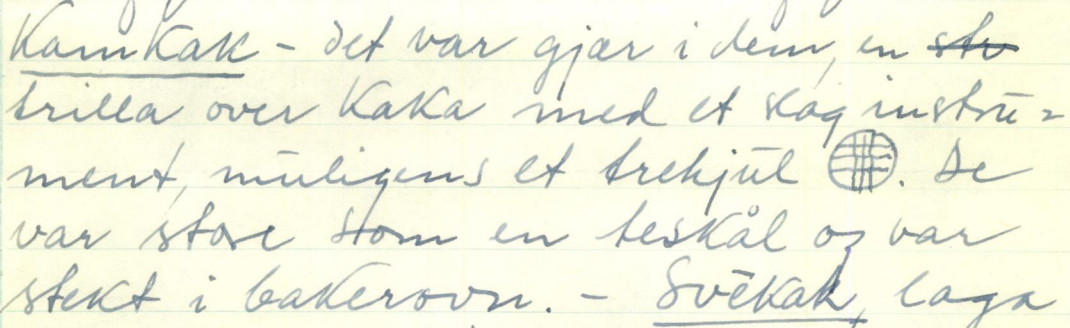 Kamkak - det var gjær i dem, en
trilla over kaka med et slag instru=
ment, muligens et trehjul . De
var store som en teskål og var
stekt i bakerovn. - Svēkak, laga